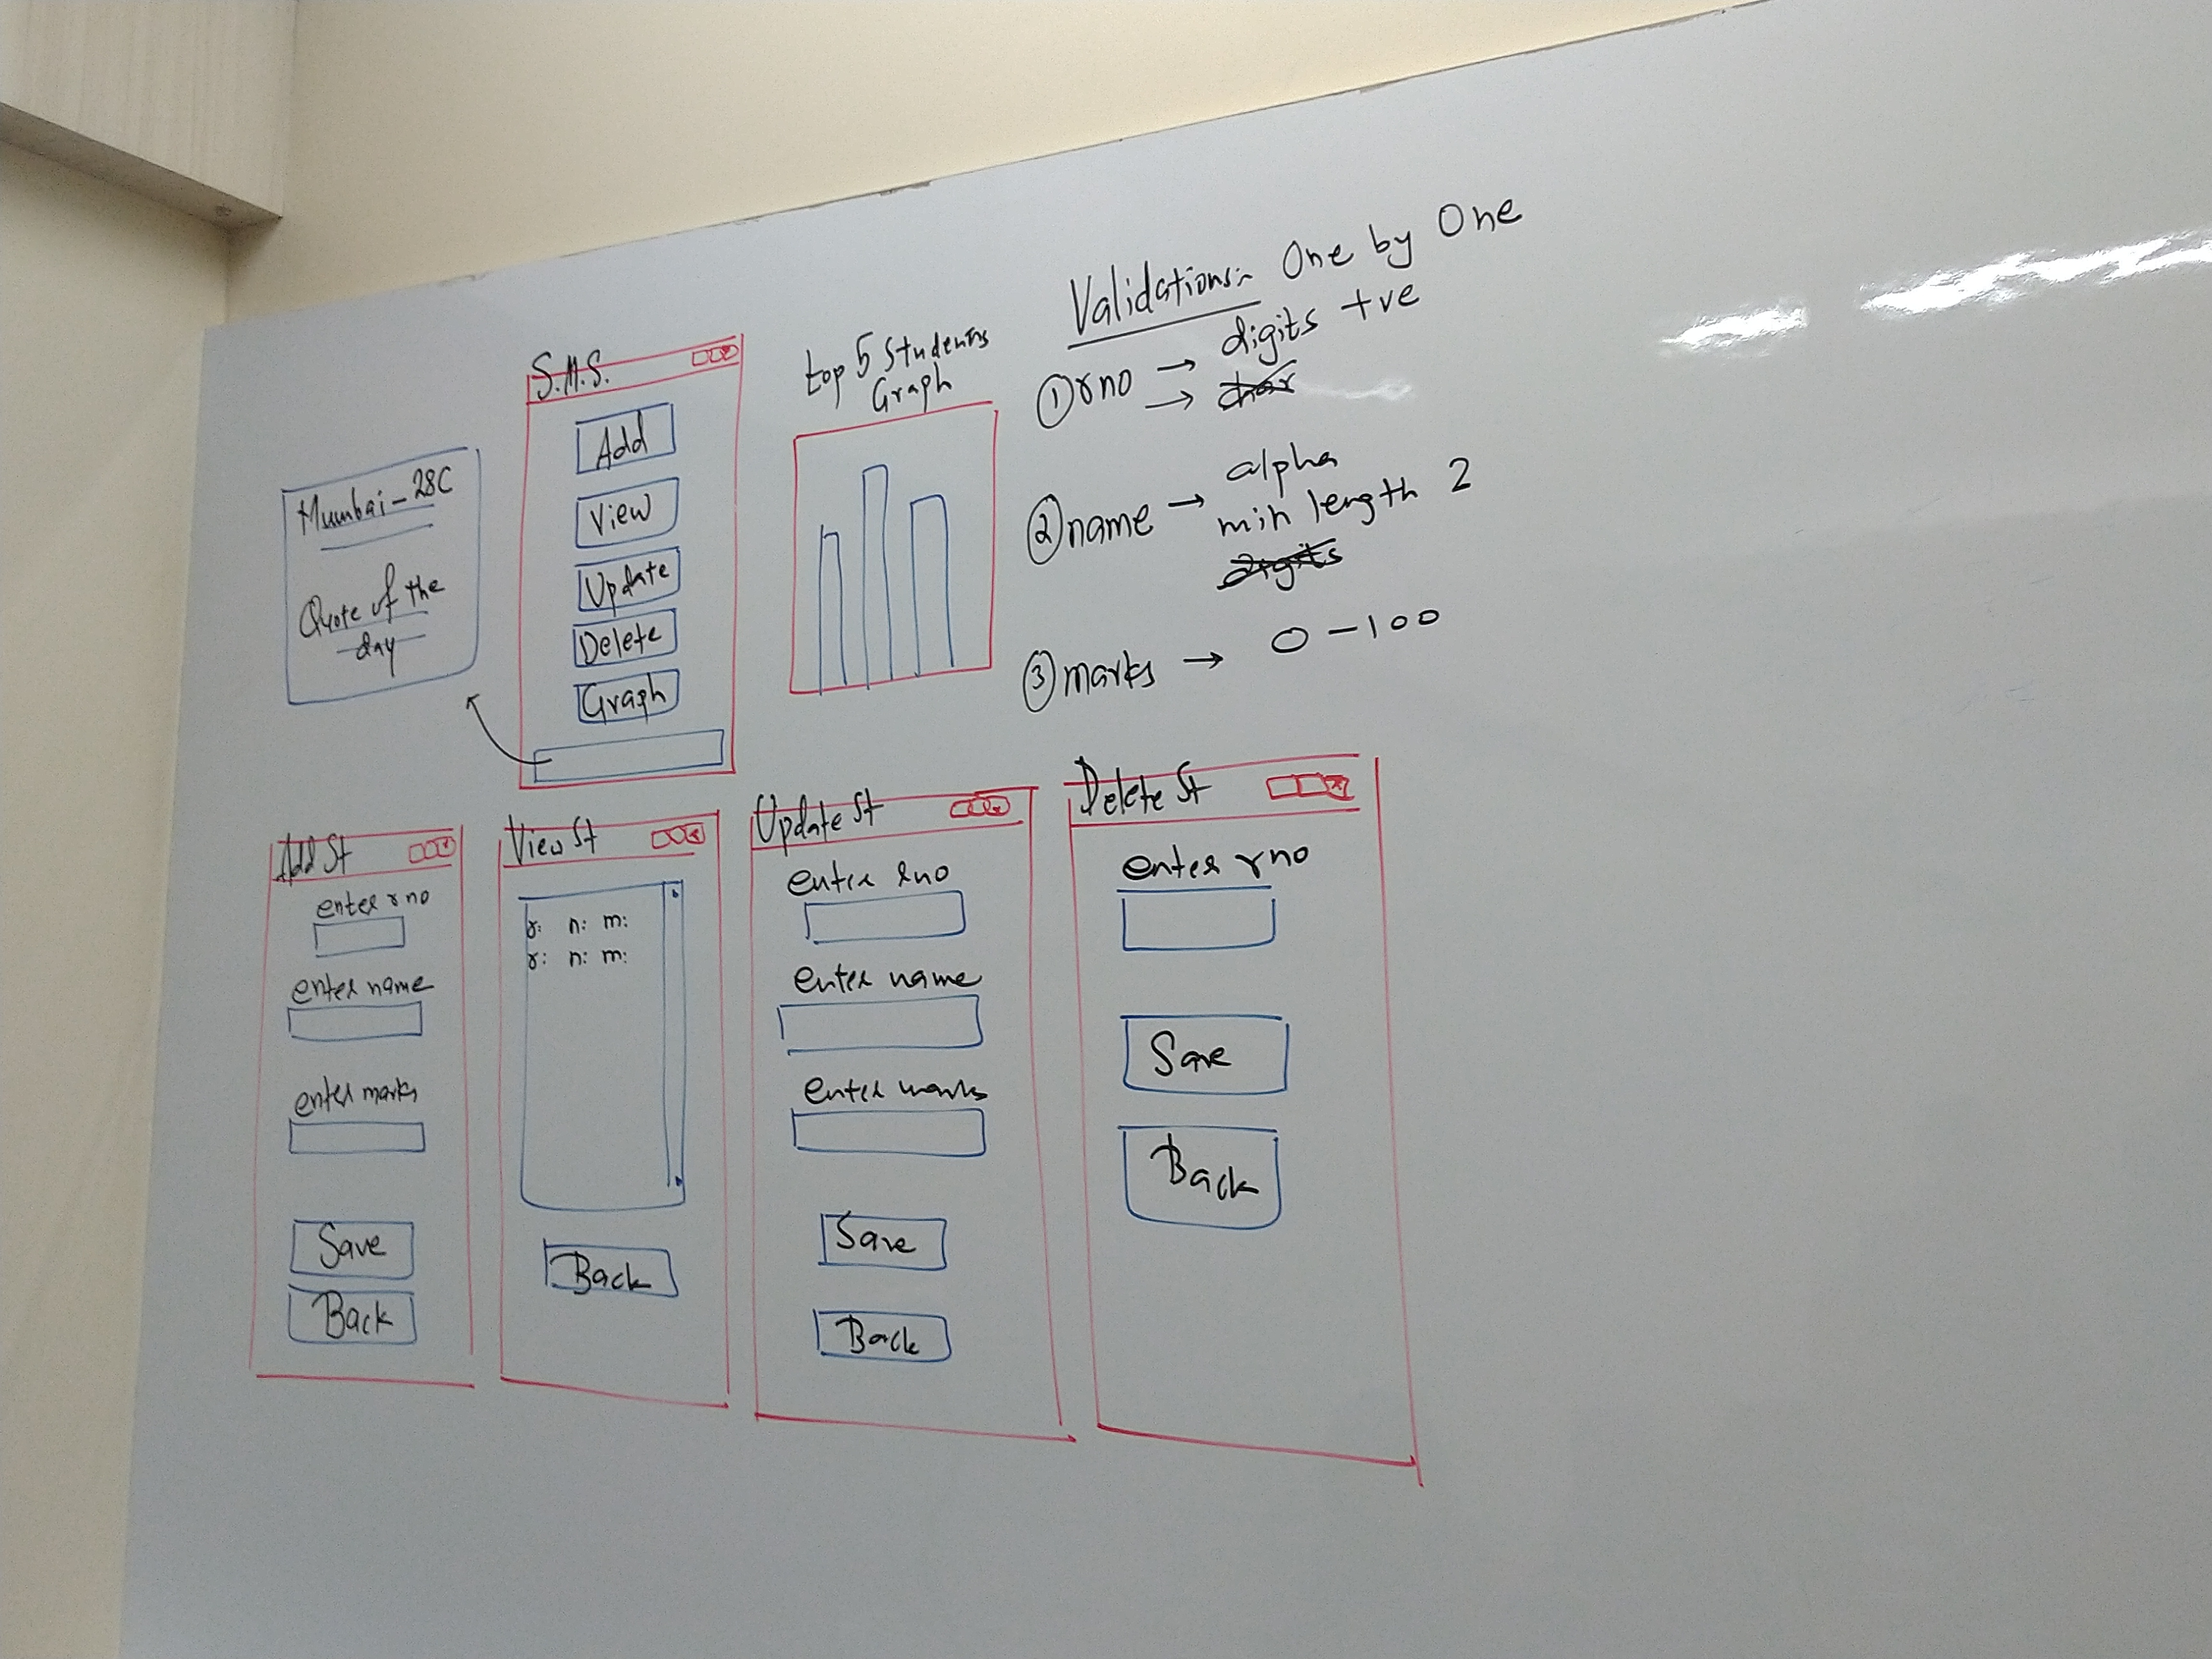 S.M.S.
Add
View
Update
Delete
Graph
Mumbai - 28C
Quote of the
day
top 5 Students
Graph
Validations:- One by One
① rno → digits +ve
→ char
② name → alpha
min length 2
digits
③ marks → 0 - 100
Add St
enter rno
enter name
enter marks
Save
Back
View St
r: n: m:
r: n: m:
Back
Update St
enter rno
enter name
enter marks
Save
Back
Delete St
enter rno
Save
Back